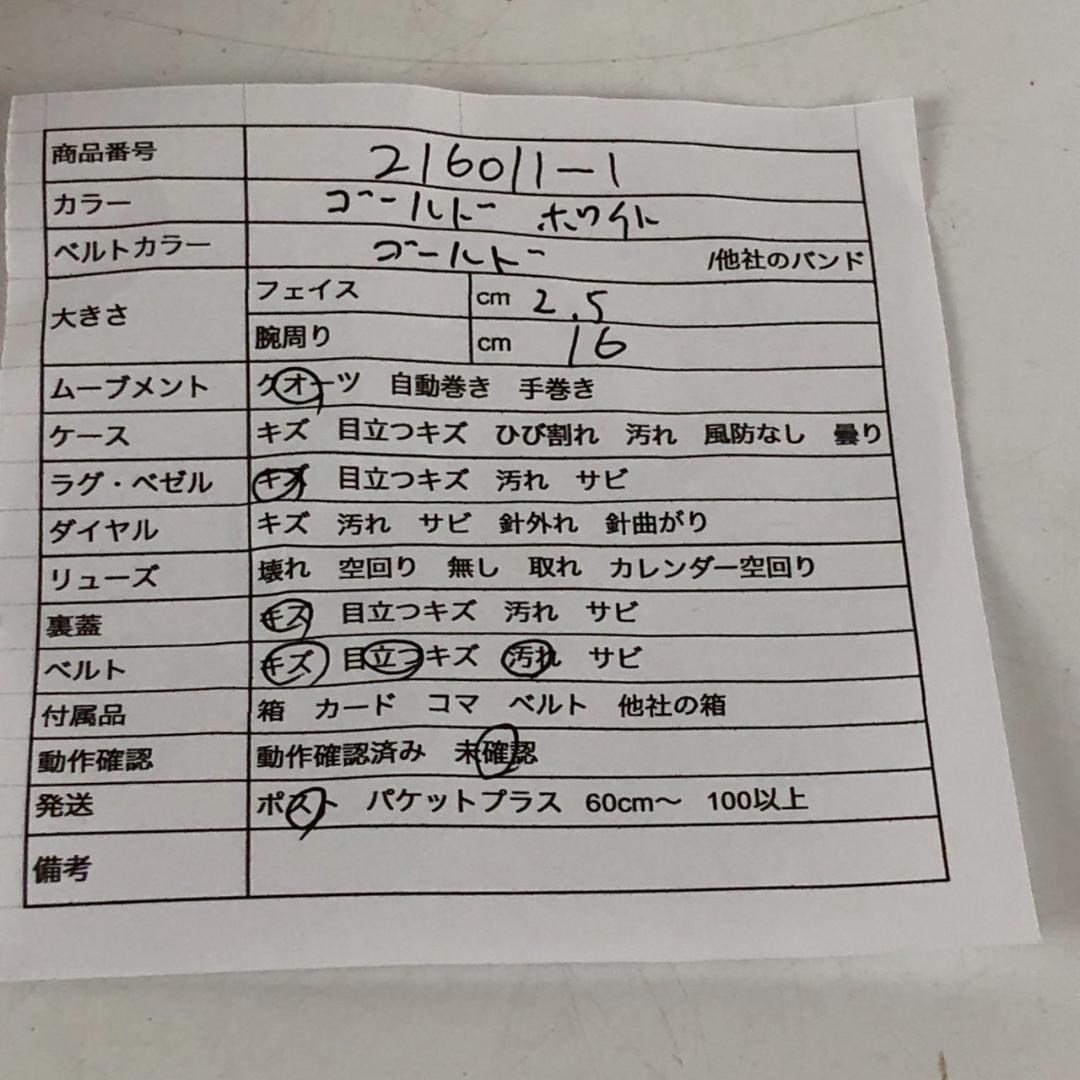 商品番号 216011-1
カラー ゴールド ホワイト
ベルトカラー ゴールド /他社のバンド
大きさ フェイス cm 2.5
腕周り cm 16
ムーブメント クオーツ 自動巻き 手巻き
ケース キズ 目立つキズ ひび割れ 汚れ 風防なし 曇り
ラグ・ベゼル キズ 目立つキズ 汚れ サビ
ダイヤル キズ 汚れ サビ 針外れ 針曲がり
リューズ 壊れ 空回り 無し 取れ カレンダー空回り
裏蓋 キズ 目立つキズ 汚れ サビ
ベルト キズ 目立つキズ 汚れ サビ
付属品 箱 カード コマ ベルト 他社の箱
動作確認 動作確認済み 未確認
発送 ポスト パケットプラス 60cm～ 100以上
備考